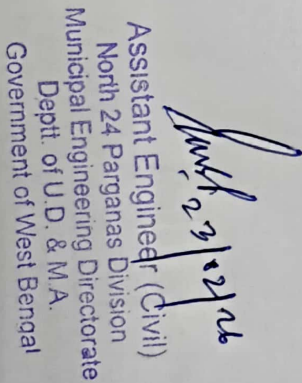 23/02/26
Assistant Engineer (Civil)
North 24 Parganas Division
Municipal Engineering Directorate
Deptt. of U.D. & M.A.
Government of West Bengal